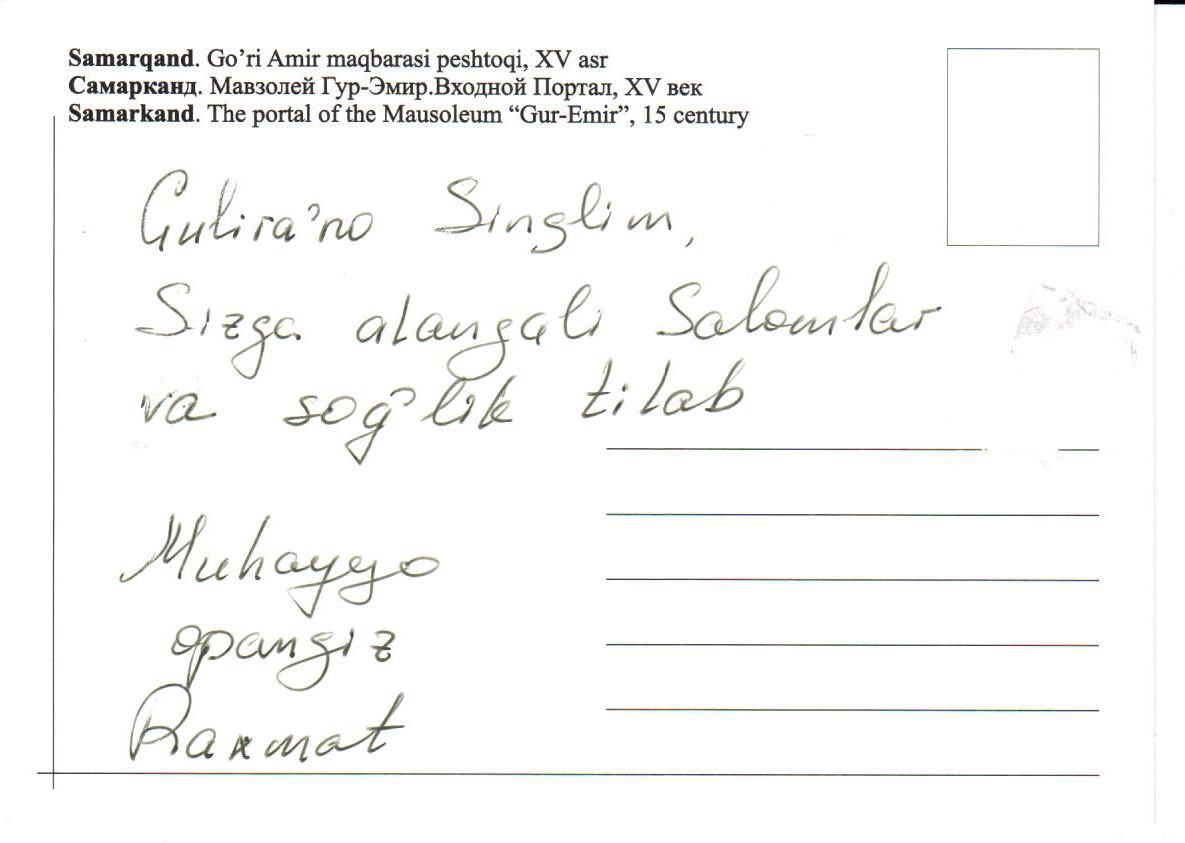 Samarqand. Go’ri Amir maqbarasi peshtoqi, XV asr
Самарканд. Мавзолей Гур-Эмир.Входной Портал, XV век
Samarkand. The portal of the Mausoleum “Gur-Emir”, 15 century
Gulira’no Singlim,
Sizga alangali Salomlar
va sog’lik tilab
Muhayyo
opangiz
Raxmat